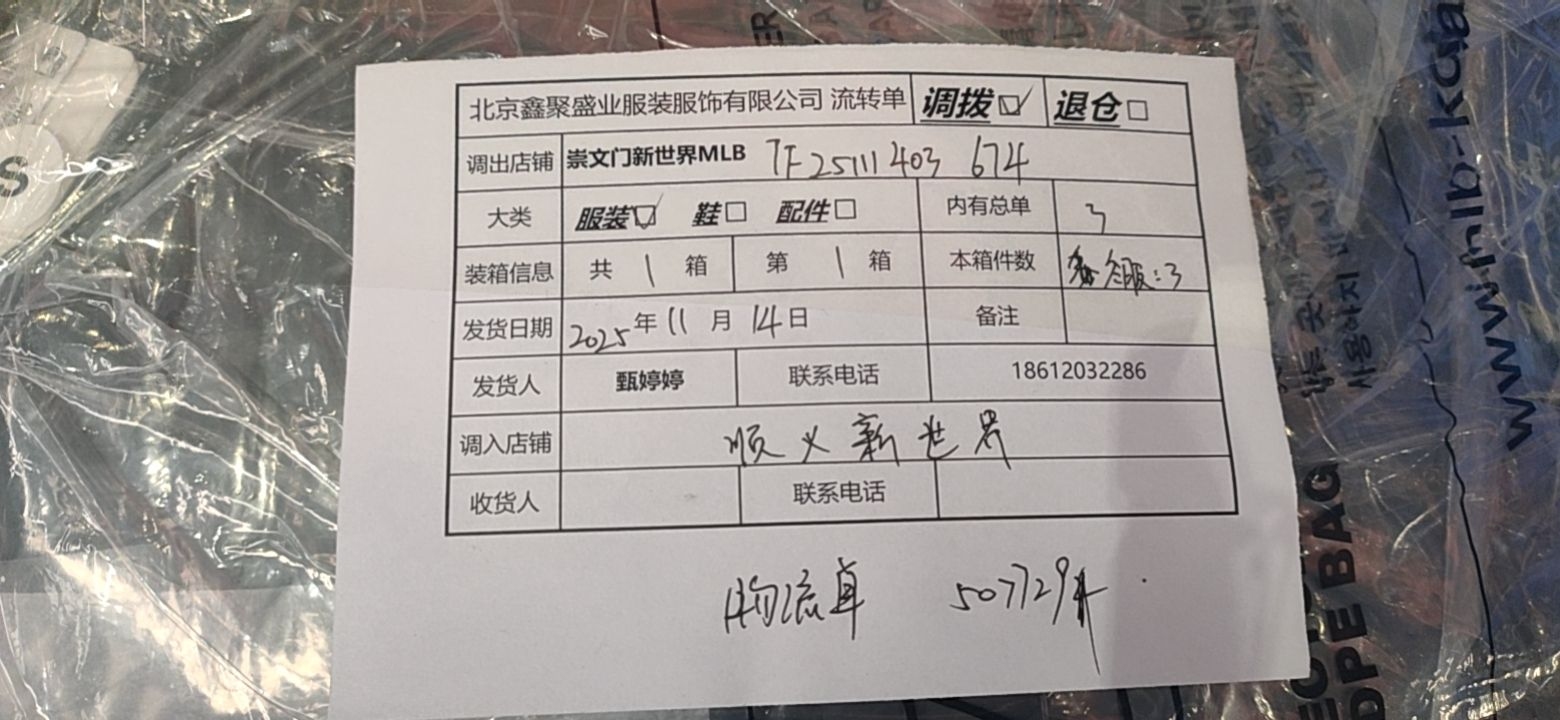 北京鑫聚盛业服装服饰有限公司 流转单 调拨☑ 退仓□
调出店铺 崇文门新世界MLB TF25111403 674
大类 服装☑ 鞋□ 配件□ 内有总单 3
装箱信息 共 1 箱 第 1 箱 本箱件数 服:3
发货日期 2025年11月14日 备注
发货人 甄婷婷 联系电话 18612032286
调入店铺 顺义新世界
收货人 联系电话
物流单 507729
S
www.mlb-korea
OPE BAG